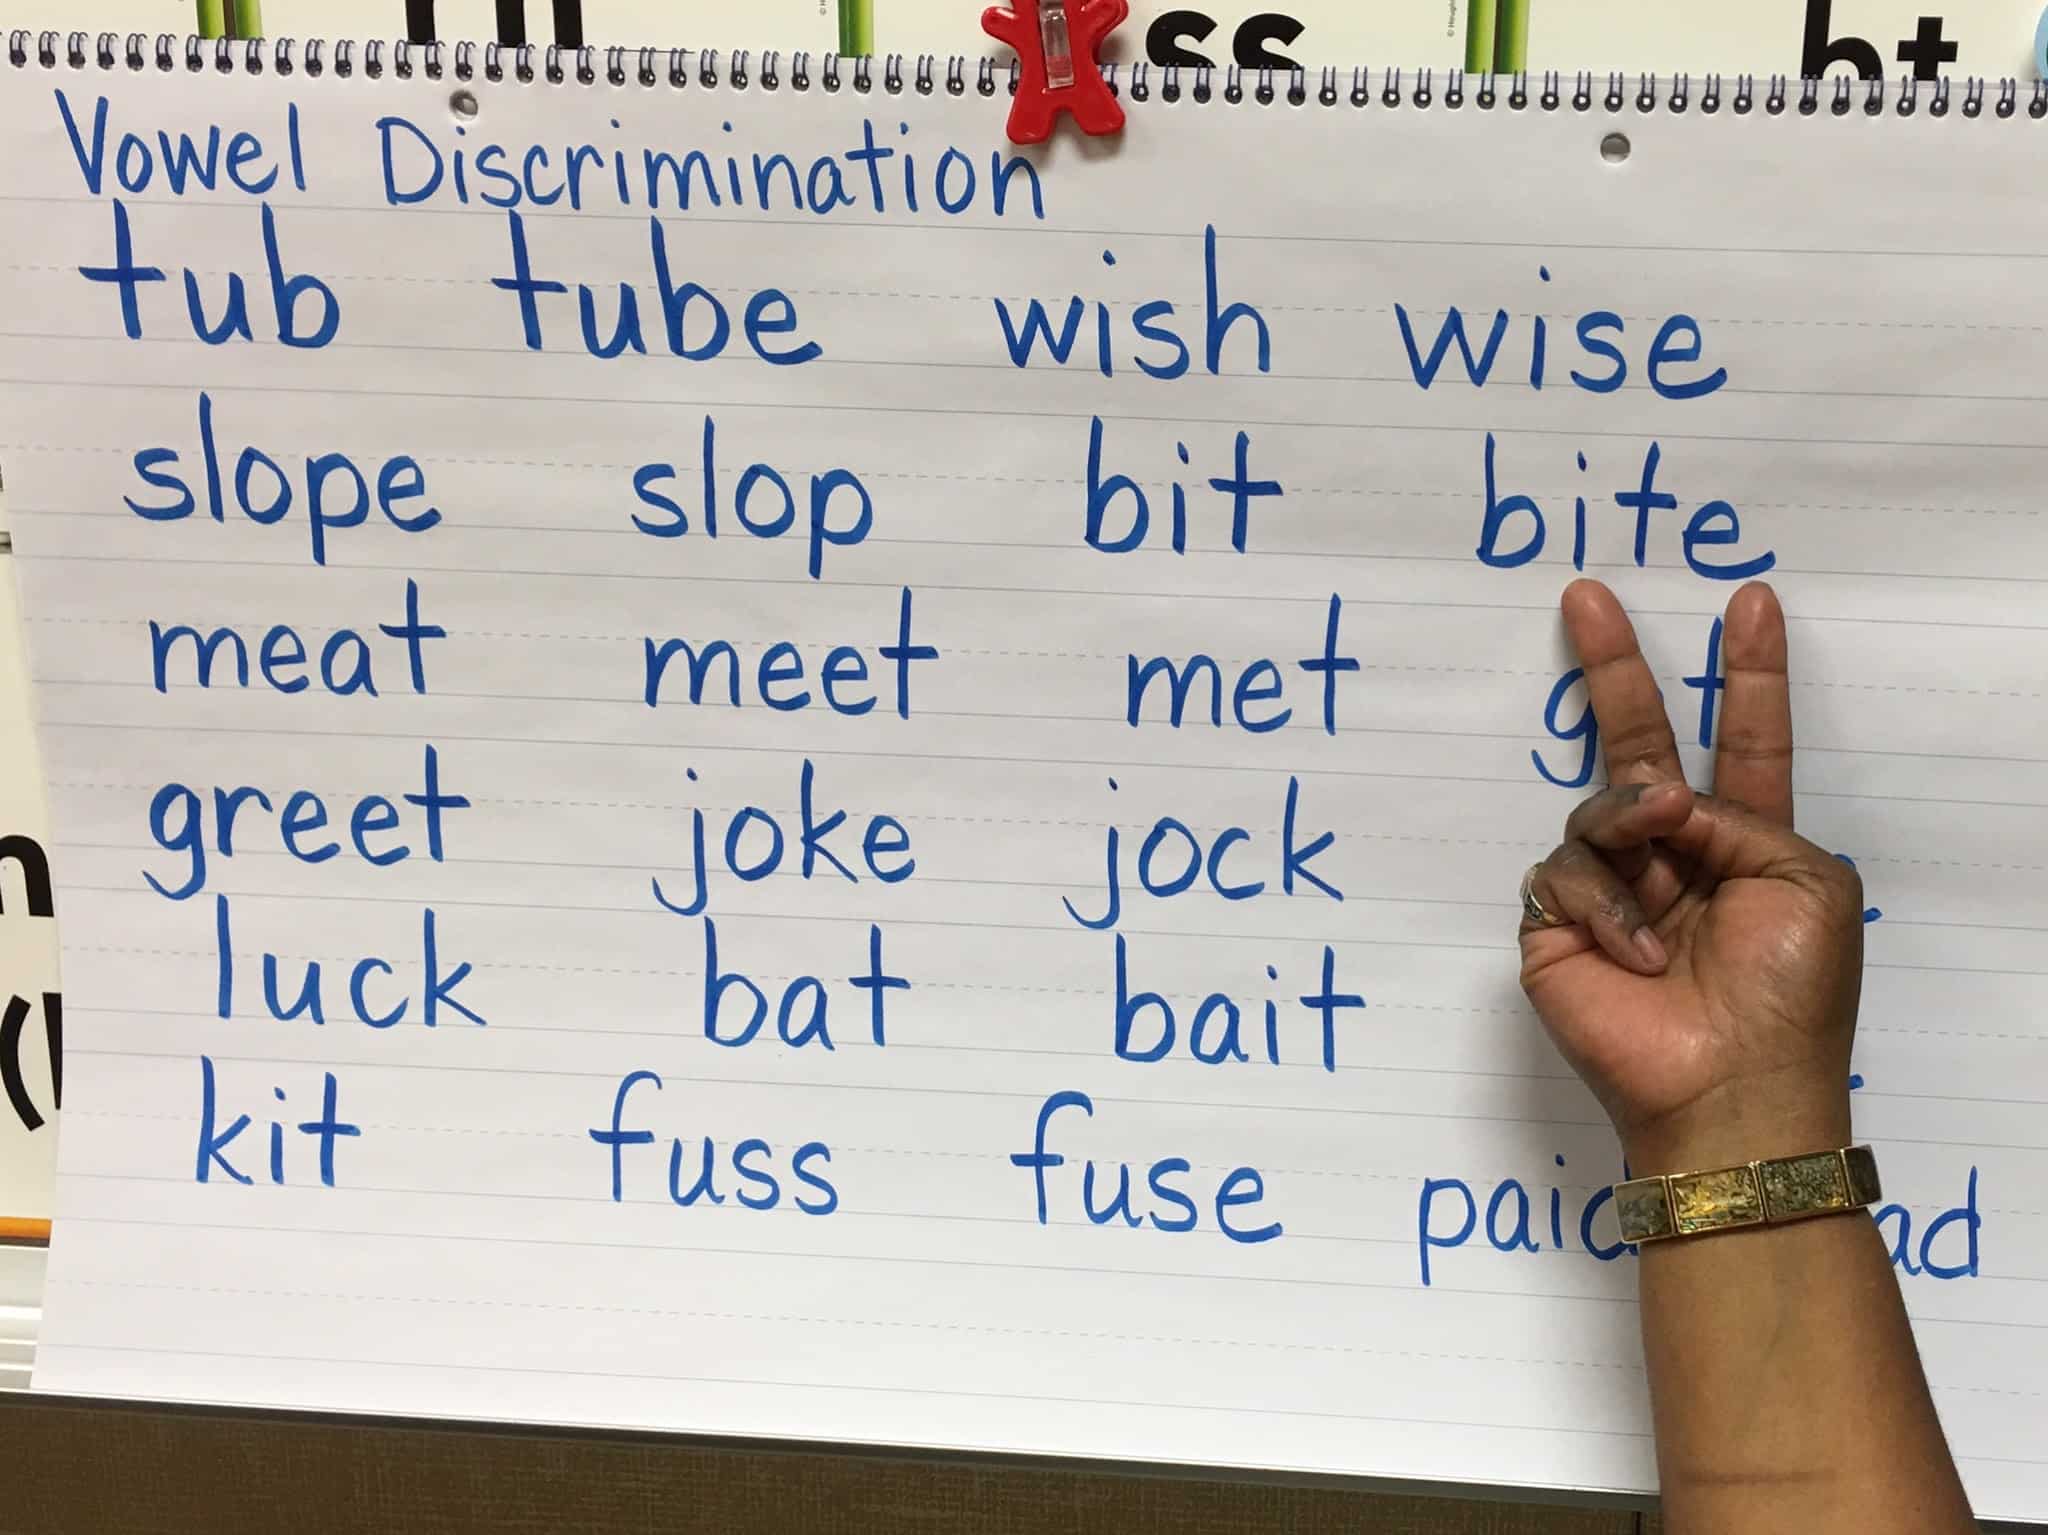 ss
Vowel Discrimination
tub tube wish wise
slope slop bit bite
meat meet met
greet joke jock
luck bat bait
kit fuss fuse paid